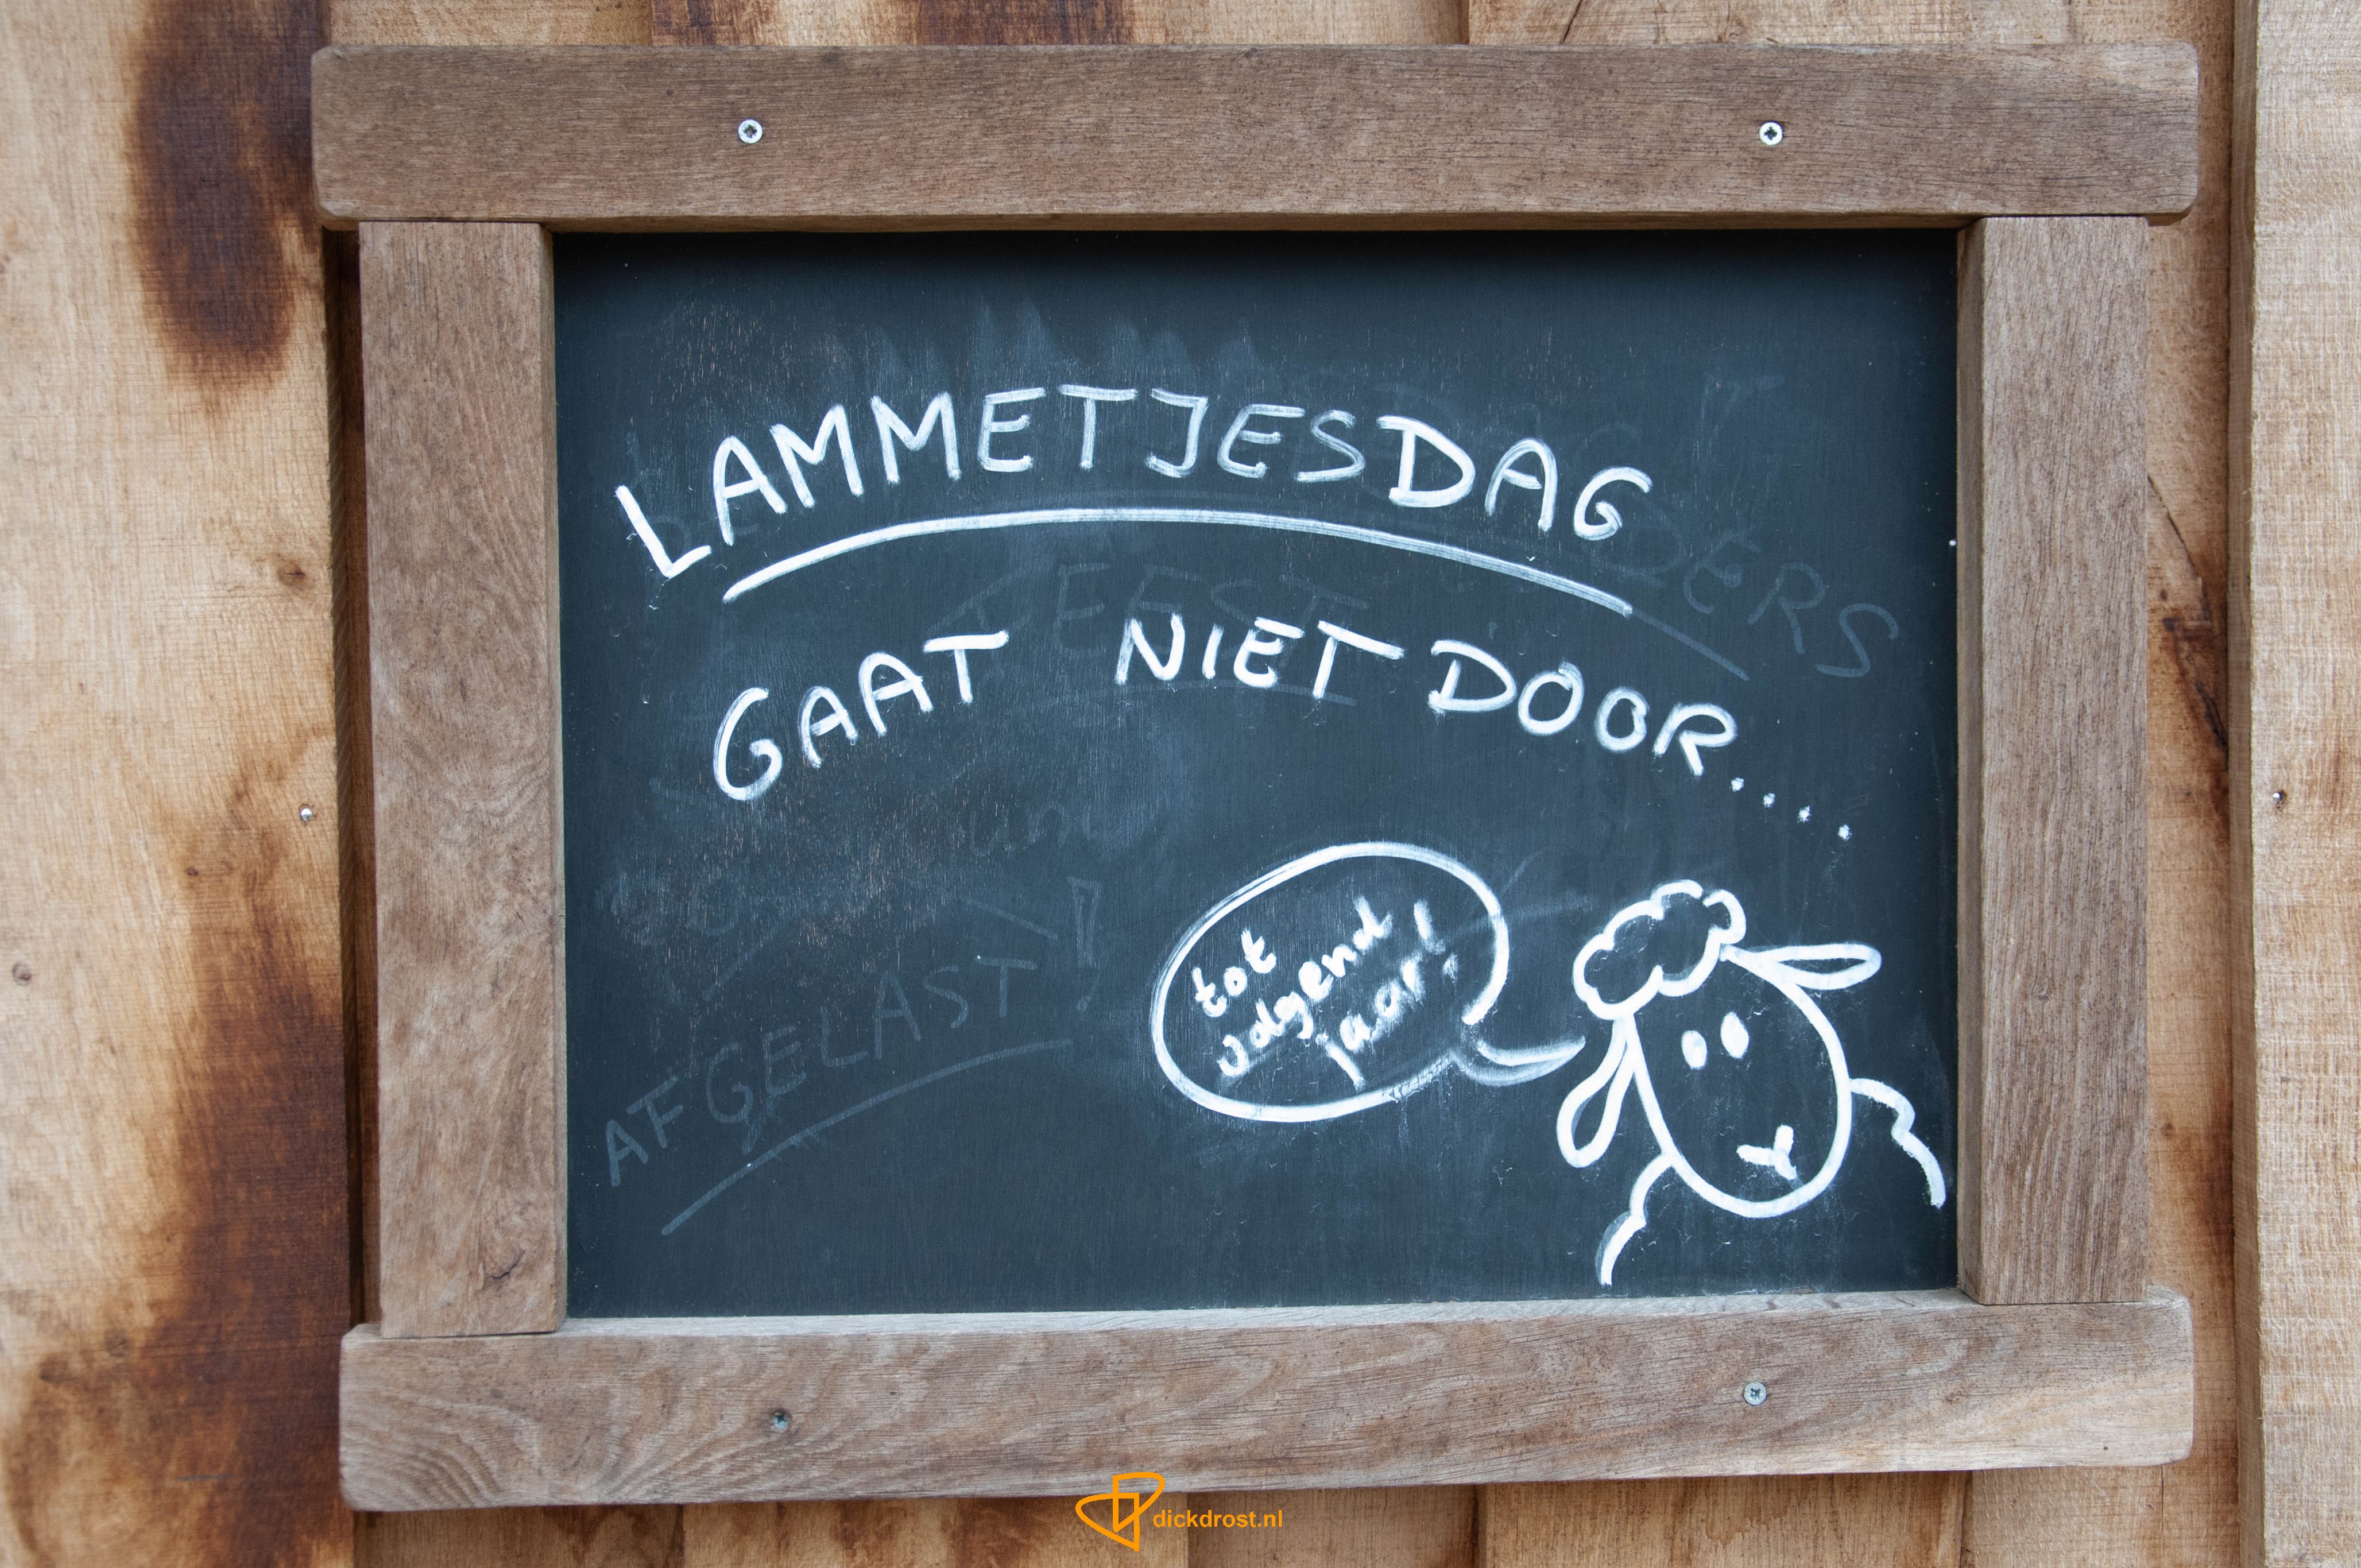 LAMMETJESDAG
GAAT NIET DOOR....
tot
volgend
jaar!
FEEST
AFGELAST!
dickdrost.nl